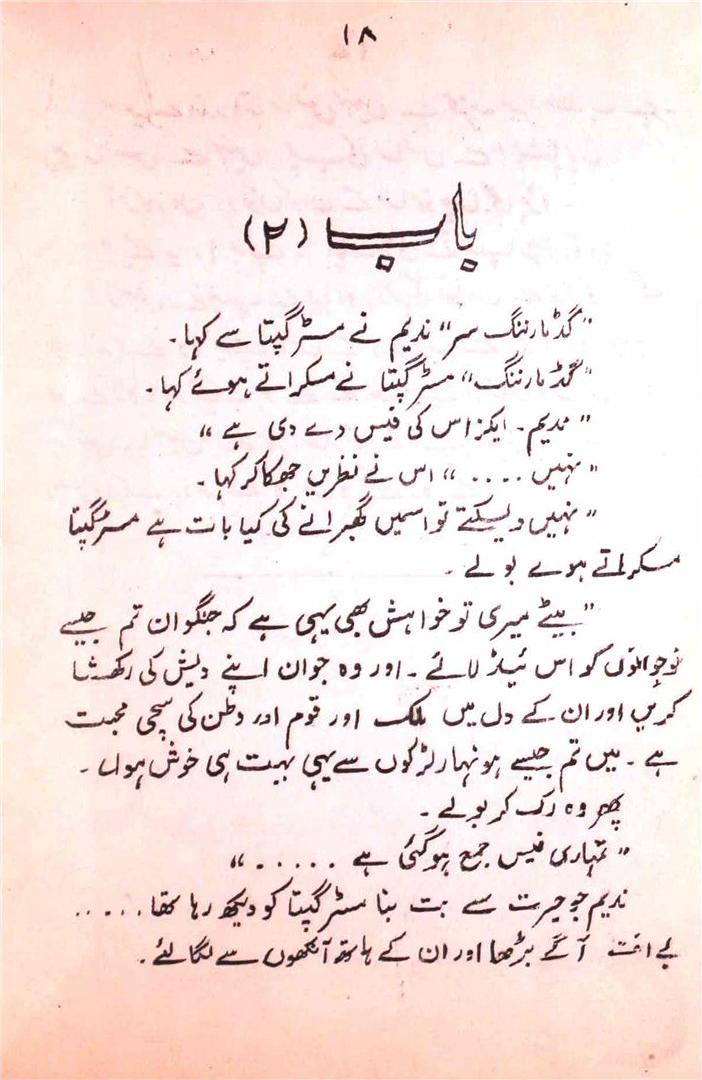 ۱۸
باب (۲)
"گڈ مارننگ سر" ندیم نے مسٹر گپتا سے کہا۔
"گڈ مارننگ" مسٹر گپتا نے مسکراتے ہوئے کہا۔
"ندیم۔ ایکزاس کی فیس دے دی ہے"
"نہیں ...." اس نے نظریں جھکا کر کہا۔
"نہیں دیسکتے تو اسمیں گھبرانے کی کیا بات ہے مسٹر گپتا
مسکراتے ہوے بولے۔
"بیٹے میری تو خواہش بھی یہی ہے کہ بھگوان تم جیسے
نوجوانوں کو اس فیلڈ لائے۔ اور وہ جوان اپنے دیش کی رکھشا
کریں اور ان کے دل میں ملک اور قوم اور وطن کی سچی محبت
ہے۔ میں تم جیسے ہونہار لڑکوں سے یہی بہت ہی خوش ہوں۔
پھر وہ رک کر بولے۔
"تمہاری فیس جمع ہو گئی ہے ....."
ندیم جو حیرت سے بت بنا مسٹر گپتا کو دیکھ رہا تھا .....
آگے بڑھا اور ان کے ہاتھ آنکھوں سے لگالئے۔